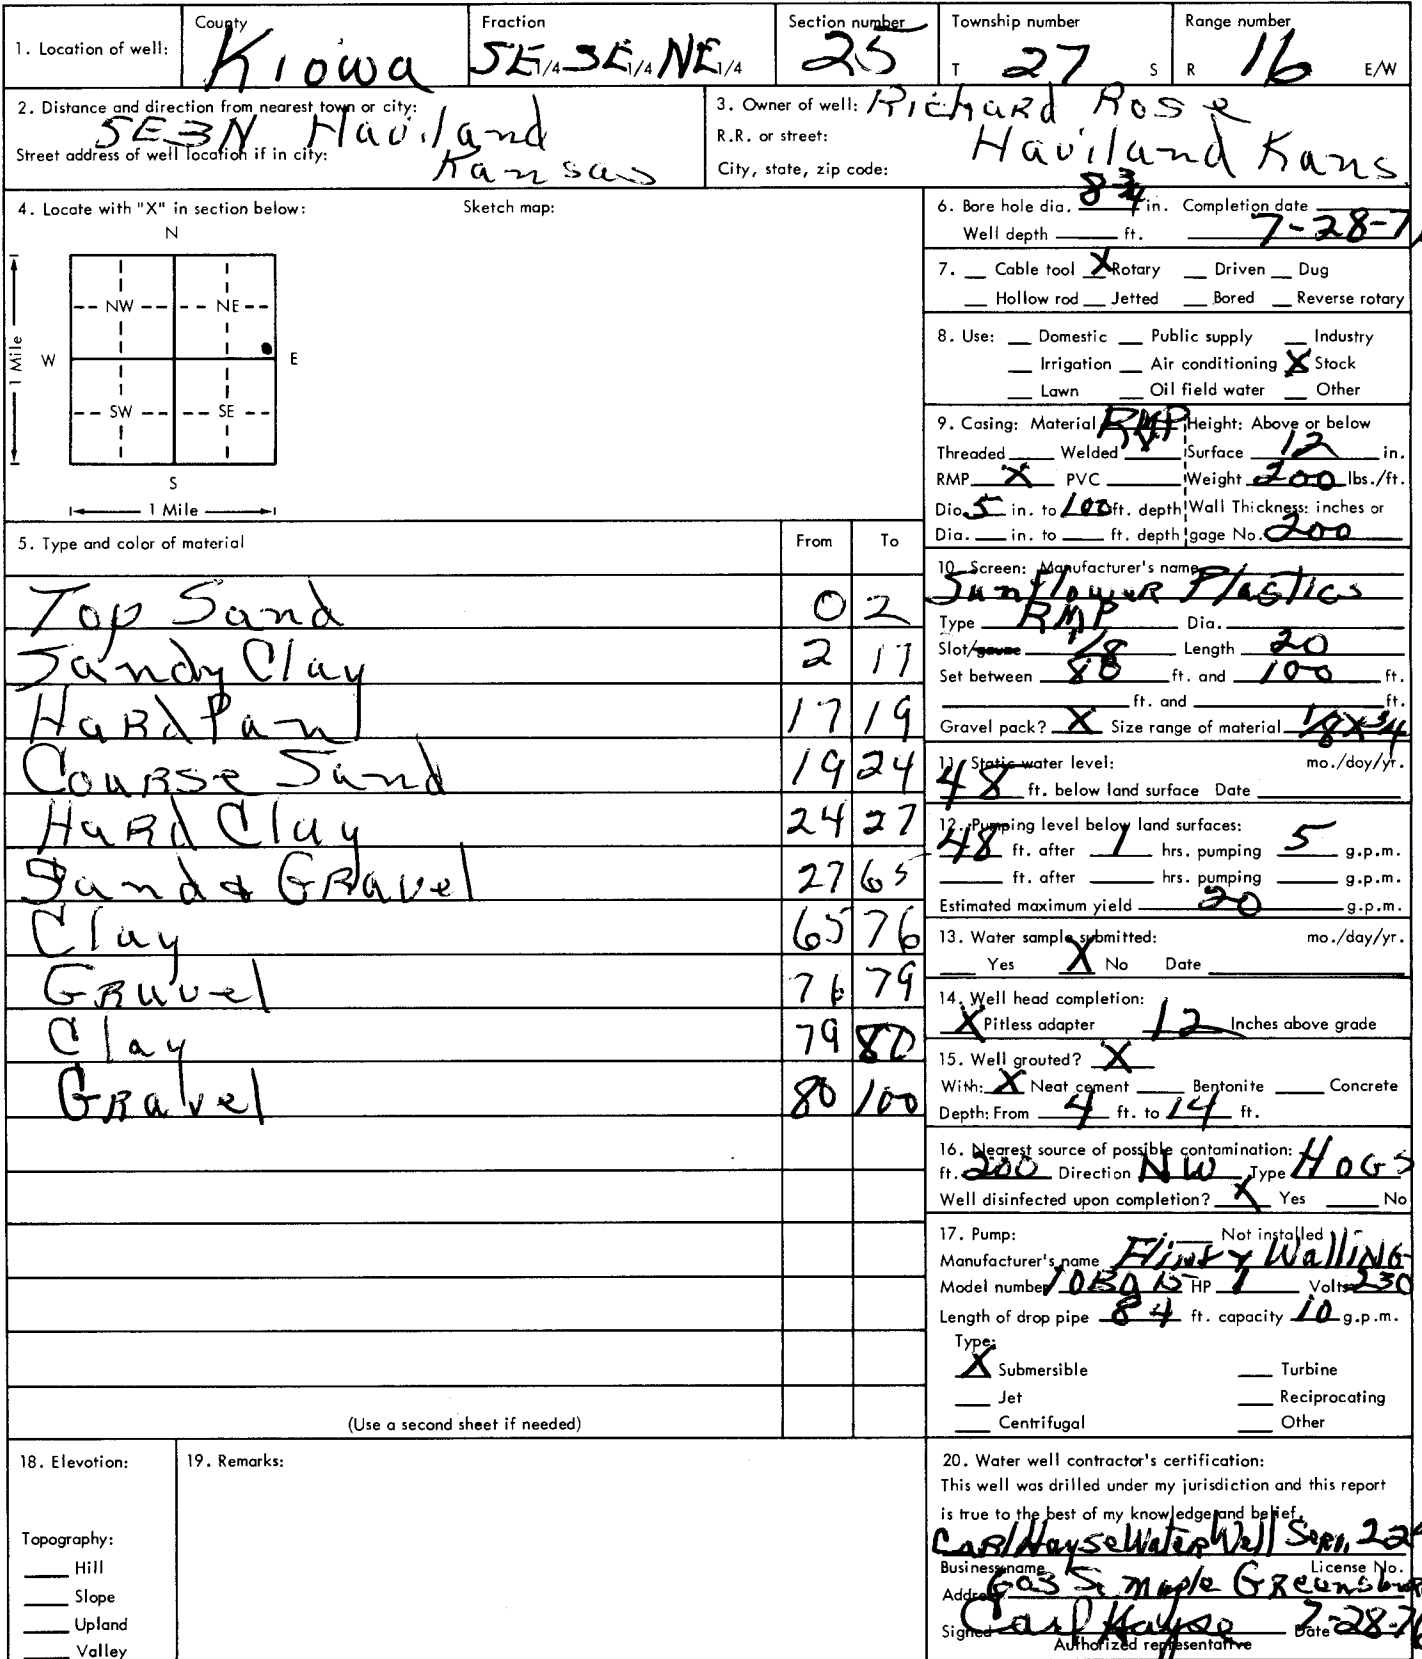 1. Location of well: County Kiowa Fraction SE 1/4 SE 1/4 NE 1/4 Section number 25 Township number T 27 S Range number R 16 E/W
2. Distance and direction from nearest town or city: SE 3N Haviland
Street address of well location if in city: Kansas
3. Owner of well: Richard Rose
R.R. or street:
City, state, zip code: Haviland Kans
4. Locate with "X" in section below: Sketch map:
N
NW NE
W E
SW SE
S
1 Mile
1 Mile
5. Type and color of material From To
Top Sand 0 2
Sandy Clay 2 17
Hard Pan 17 19
Course Sand 19 24
Hard Clay 24 27
Sand & Gravel 27 65
Clay 65 76
Gravel 76 79
Clay 79 80
Gravel 80 100
(Use a second sheet if needed)
6. Bore hole dia. 8 3/4 in. Completion date
Well depth ft. 7-28-7
7. Cable tool X Rotary Driven Dug
Hollow rod Jetted Bored Reverse rotary
8. Use: Domestic Public supply Industry
Irrigation Air conditioning X Stock
Lawn Oil field water Other
9. Casing: Material RMP Height: Above or below
Threaded Welded Surface 12 in.
RMP X PVC Weight 200 lbs./ft.
Dia. 5 in. to 100 ft. depth Wall Thickness: inches or
Dia. in. to ft. depth gage No. 200
10. Screen: Manufacturer's name
Sunflower Plastics
Type RMP Dia.
Slot/gauze 1/8 Length 20
Set between 80 ft. and 100 ft.
ft. and ft.
Gravel pack? X Size range of material 1/8 X 3/4
11. Static water level: mo./day/yr.
48 ft. below land surface Date
12. Pumping level below land surfaces:
48 ft. after 1 hrs. pumping 5 g.p.m.
ft. after hrs. pumping g.p.m.
Estimated maximum yield 20 g.p.m.
13. Water sample submitted: mo./day/yr.
Yes X No Date
14. Well head completion:
X Pitless adapter 12 Inches above grade
15. Well grouted? X
With: X Neat cement Bentonite Concrete
Depth: From 4 ft. to 14 ft.
16. Nearest source of possible contamination:
ft. 200 Direction NW Type HOGS
Well disinfected upon completion? X Yes No
17. Pump: Not installed
Manufacturer's name Flint & Walling
Model number HP 1 Volts 230
Length of drop pipe 84 ft. capacity 10 g.p.m.
Type:
X Submersible Turbine
Jet Reciprocating
Centrifugal Other
18. Elevation:
Topography:
Hill
Slope
Upland
Valley
19. Remarks:
20. Water well contractor's certification:
This well was drilled under my jurisdiction and this report
is true to the best of my knowledge and belief.
Carl Hayse Water Well Serv. 224
Business name License No.
Address 603 S. Maple Greensbur
Signed Carl Hayse Date 7-28-76
Authorized representative